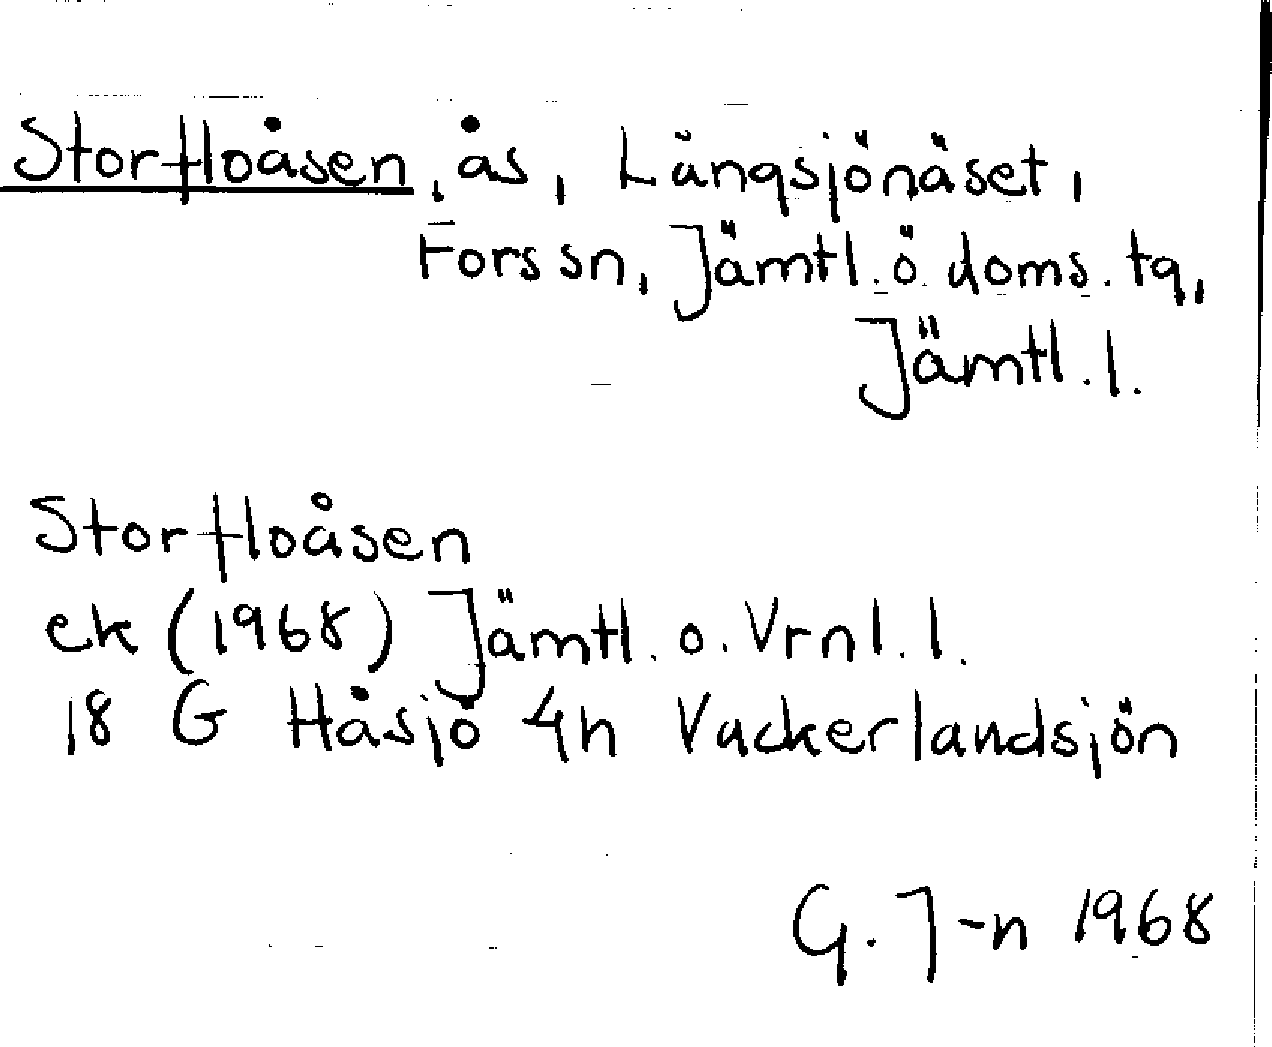 Storfloåsen, ås, Långsjönäset,
Fors sn, Jämtl. ö doms. tg,
Jämtl. l.
Storfloåsen
ek (1968) Jämtl. o. Vrnl. l.
18 G Håsjö 4h Vackerlandsjön
G. J-n 1968